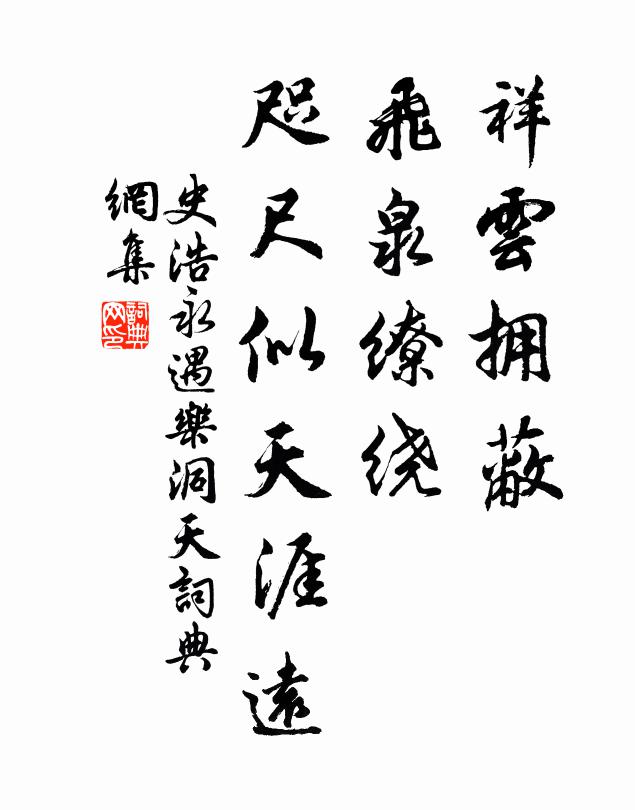 祥雲拥蔽
飛泉缭绕
咫尺似天涯遠
史浩永遇樂洞天詞典
網集
詞典
网印